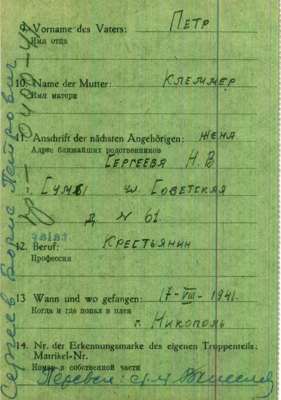 9. Vorname des Vaters: ПЕТР
Имя отца
10. Name der Mutter: КЛЕММЕР
Имя матери
11. Anschrift der nächsten Angehörigen: жена
Адрес ближайших родственников
СЕРГЕЕВА Н.В
г. СУМЫ ул СОВЕТСКАЯ
Д № 61
12. Beruf: КРЕСТЬЯНИН
Профессия
13 Wann und wo gefangen: 17-VIII-1941
Когда и где попал в плен
г. Никополь
14. Nr. der Erkennungsmarke des eigenen Truppenteils:
Matrikel-Nr.
Номер в собственной части
Перевел:
Сергеев Борис Петрович